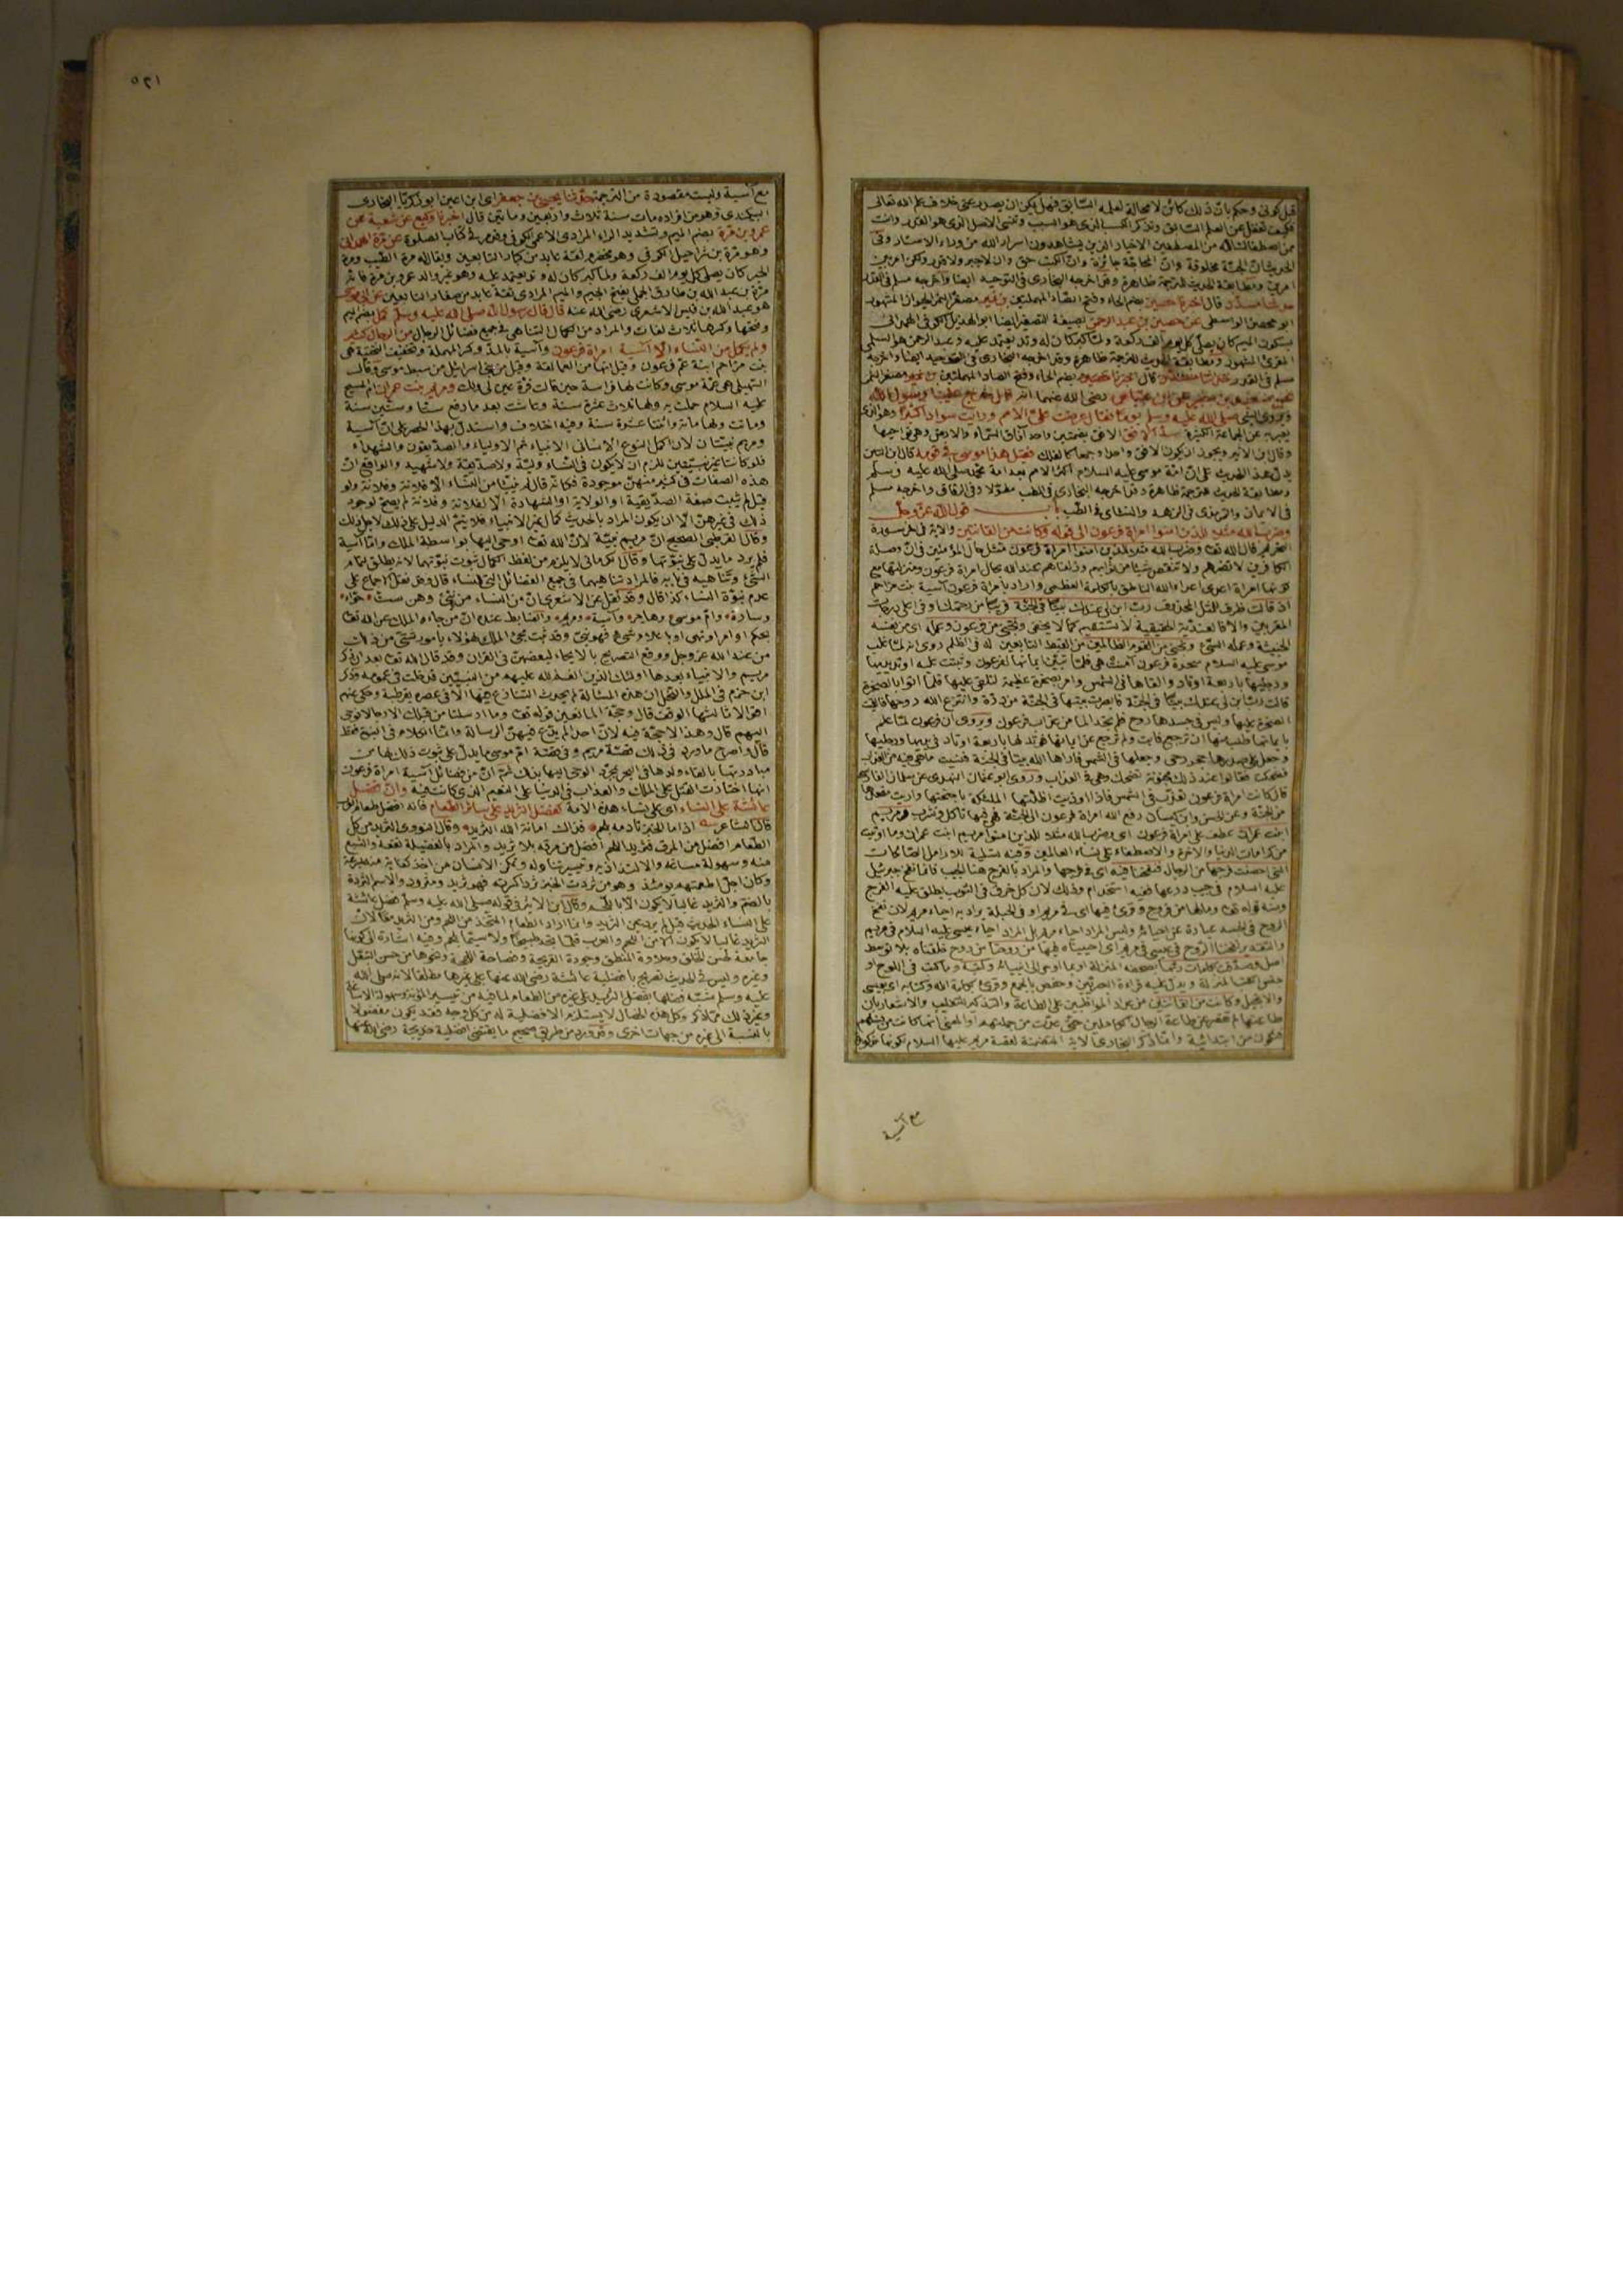 قبل كونى وحكم بان ذلك كائن لا محالة لعلمه السابق فهل يمكن ان يصدر عنى خلاف علم الله تعالى
فكيف تغفل عن العلم السابق وتذكر الكسب الذى هو السبب وتنسى الاصل الذى هو القدر وانت
ممن اصطفاك الله من المصطفين الاخيار الذين يشاهدون اسرار الله من وراء الاستار وفى
الحديث ان الجنة مخلوقة وان المحاجة جائزة
ومطابقة الحديث للترجمة ظاهرة وقد اخرجه البخارى فى التوحيد ايضا واخرجه مسلم فى القدر
حدثنا مسدد قال اخبرنا حصين بضم الحاء وفتح الصاد المهملتين بن نمير مصغر النمر الحيوان المشهور
ابو محصن الواسطى عن حصين بن عبد الرحمن بصيغة التصغير ايضا ابو الهذيل الكوفى
رضى الله عنهما انه قال خرج علينا رسول الله
النبى صلى الله عليه وسلم يوما فقال عرضت على الامم ورايت سوادا كثيرا
يعبر به عن الجماعة الكثيرة سد الافق الافق بضمتين واحد آفاق السماء والارض وهى نواحيها
وقال ابن الاثير ويجوز ان يكون الافق واحدا وجمعا كالفلك فقيل هذا موسى فى قومه قال ابن التين
يدل هذا الحديث على ان امة موسى عليه السلام اكثر الامم بعد امة محمد صلى الله عليه وسلم
ومطابقة الحديث للترجمة ظاهرة وقد اخرجه البخارى فى الطب مطولا وفى الرقاق واخرجه مسلم
فى الايمان والترمذى فى الزهد والنسائى فى الطب باب قول الله عز وجل
وضرب الله مثلا للذين امنوا امراة فرعون الى قوله وكانت من القانتين
قال الله تع وضرب الله مثلا للذين امنوا امراة فرعون مثل حال المؤمنين فى ان وصلة
الكافرين لا تضرهم ولا تنقص شيئا من ثوابهم وزلفاهم عند الله بحال امراة فرعون ومنزلتها مع
كونها امراة اعدى اعداء الله الناطق بالكلمة العظمى واراد بامراة فرعون آسية بنت مزاحم
اذ قالت ظرف للمثل المحذوف رب ابن لى عندك بيتا فى الجنة قريبا من رحمتك او فى اعلى درجات
المقربين ونجنى من فرعون وعمله اى من نفسه
الخبيثة وعمله السيئ ونجنى من القوم الظالمين من القبط التابعين له فى الظلم روى انه لما غلب
موسى عليه السلام سحرة فرعون آمنت هى فلما تبين ايمانها لفرعون وثبتت عليه اوتد يديها
ورجليها باربعة اوتاد والقاها فى الشمس وامر بصخرة عظيمة لتلقى عليها فلما اتوا بالصخرة
قالت رب ابن لى عندك بيتا فى الجنة فابصرت بيتها فى الجنة من درة وانتزع الله روحها فالقيت
الصخرة عليها وليس فى جسدها روح فلم تجد الما من عذاب فرعون ويروى ان فرعون لما علم
بايمانها طلب منها ان ترجع فابت ولم ترجع عن ايمانها فوتد لها باربعة اوتاد فى يديها ورجليها
وجعل على صدرها حجر رحى وجعلها فى الشمس فاراها الله بيتا فى الجنة فنسيت ما هى فيه من العذاب
فضحكت فقالوا عند ذلك مجنونة تضحك وهى فى العذاب وروى ابو عثمان النهدى عن سلمان الفارسى
قال كانت امراة فرعون تعذب فى الشمس فاذا اوذيت اظلتها الملئكة باجنحتها واريت مقعدها
من الجنة وعن الحسن وابن كيسان رفع الله امراة فرعون الى الجنة فهى فيها تاكل وتشرب ومريم
ابنت عمران عطف على امراة فرعون اى وضرب الله مثلا للذين امنوا مريم ابنت عمران وما اوتيت
من كرامات الدنيا والاخرة والاصطفاء على نساء العالمين وفيه تسلية للارامل الصالحات
التى احصنت فرجها من الرجال فنفخنا فيه اى فى فرجها والمراد بالفرج هنا الجيب فانما نفخ جبرئيل
عليه السلام فى جيب درعها ففيه استخدام وذلك لان كل خرق فى الثوب يطلق عليه الفرج
ومنه قوله تع ومالها من فروج وقرئ فيها اى فى مريم او فى الحبلة يراد به احياء مريم لان نفخ
الروح فى الجسد عبارة عن احيائه وليس المراد احياء مريم بل المراد احياء عيسى عليه السلام فى مريم
من روحنا من روح خلقناه بلا توسط
اصل وصدقت بكلمات ربها بصحفه المنزلة او بما اوحى الى انبيائه وكتبه وما كتب فى اللوح او
جنس الكتب المنزلة ويدل عليه قراءة البصريين وحفص بالجمع وقرئ بكلمة الله وكتابه اى بعيسى
والانجيل وكانت من القانتين من عداد المواظبين على الطاعة والتذكير للتغليب والاشعار بان
طاعتها لم تقصر عن طاعة الرجال الكاملين حتى عدت من جملتهم
فتكون من ابتدائية وانما ذكر البخارى الاية المتضمنة لقصة مريم عليها السلام
مع آسية
١٢٥
مع آسية وليست مقصودة من الترجمة حدثنا يحيى بن جعفر اى ابن اعين ابو زكريا البخارى
البيكندى وهو من افراده مات سنة ثلاث واربعين ومائتين قال اخبرنا وكيع عن شعبة عن
عمرو بن مرة بضم الميم وتشديد الراء المرادى الاعمى الكوفى وقد مر فى كتاب الصلوة عن مرة الهمدانى
وهو مرة بن شراحيل الكوفى وهو مخضرم ثقة عابد من كبار التابعين ويقال له مرة الطيب ومرة
الخير كان يصلى كل يوم الف ركعة ولما كبر كان له وتد يعتمد عليه وهو غير والد عمرو بن مرة فانه
مرة بن عبد الله بن طارق الجملى بفتح الجيم والميم المرادى ثقة عابد من صغار التابعين عن ابى موسى
هو عبد الله بن قيس الاشعرى رضى الله عنه قال قال رسول الله صلى الله عليه وسلم كمل بضم الميم
وفتحها وكسرها ثلاث لغات والمراد من الكمال التناهى فى جميع فضائل الرجال من الرجال كثير
ولم يكمل من النساء الا آسية امراة فرعون وآسية بالمد وكسر المهملة وتخفيف التحتية هى
بنت مزاحم ابنة عم فرعون وقيل انها من العمالقة وقيل من بنى اسرائيل من سبط موسى وقال
السهيلى هى عمة موسى وكانت لها فراسة حين قالت قرة عين لى ولك ومريم بنت عمران ام المسيح
عليه السلام حملت به ولها ثلاث عشرة سنة وعاشت بعد ما رفع ستا وستين سنة
وماتت ولها مائة واثنتا عشرة سنة وفيه اختلاف واستدل بهذا الحصر على ان آسية
ومريم نبيتان لان اكمل النوع الانسانى الانبياء ثم الاولياء والصديقون والشهداء
فلو كانتا غير نبيتين للزم ان لا يكون فى النساء ولية ولا صديقة ولا شهيد والواقع ان
هذه الصفات فى كثير منهن موجودة فكانه قال لم ينبأ من النساء الا فلانة وفلانة ولو
قيل لم يثبت صفة الصديقية او الولاية او الشهادة الا لفلانة وفلانة لم يصح لوجود
ذلك فى غيرهن الا ان يكون المراد بالحديث كمال غير الانبياء فلا يتم الدليل على ذلك لاجل ذلك
وقال القرطبى الصحيح ان مريم نبية لان الله تع اوحى اليها بواسطة الملك واما آسية
فلم يرد ما يدل على نبوتها وقال الكرمانى لا يلزم من لفظ الكمال ثبوت نبوتهما لانه يطلق لتمام
الشئ وتناهيه فى بابه فالمراد تناهيهما فى جميع الفضائل التى للنساء قال وقد نقل الاجماع على
عدم نبوة النساء كذا قال وقد نقل عن الاشعرى ان من النساء من نبئ وهن ست حواء
وسارة وام موسى وهاجر وآسية ومريم والضابط عنده ان من جاءه الملك عن الله تع
بحكم او امر او نهى او باعلام شئ فهو نبى وقد ثبت مجئ الملك لهؤلاء بامور شتى من ذلك
من عند الله عز وجل ووقع التصريح بالايحاء لبعضهن فى القران وقد قال الله تع بعد ان ذكر
مريم والانبياء بعدها اولئك الذين انعم الله عليهم من النبيين فدخلت فى عمومه وذكر
ابن حزم فى الملل والنحل ان هذه المسئالة لم يحدث التنازع فيها الا فى عصره بقرطبة وحكى عنهم
اقوالا ثالثها الوقف قال وحجة المانعين قوله تع وما ارسلنا من قبلك الا رجالا نوحى
اليهم قال وهذا لا حجة فيه لان احدا لم يدع فيهن الرسالة وانما الكلام فى النبوة فقط
قال واصرح ما ورد فى ذلك قصة مريم وفى قصة ام موسى ما يدل على ثبوت ذلك لها من
مبادرتها بالقاء ولدها فى البحر بمجرد الوحى اليها بذلك ثم ان من فضائل آسية امراة فرعون
انها اختارت القتل على الملك والعذاب فى الدنيا على النعيم الذى كانت فيه وان فضل
عائشة على النساء اى على نساء هذه الامة كفضل الثريد على سائر الطعام فانه افضل طعام العرب
قال الشاعر اذا ما الخبز تادمه بلحم فذاك امانة الله الثريد وقال النووى الثريد من كل
الطعام افضل من المرق فثريد اللحم افضل من مرقه بلا ثريد والمراد بالفضيلة نفعه والشبع
منه وسهولة مساغه والالتذاذ به وتيسير تناوله وتمكن الانسان من اخذ كفايته منه بسرعة
وكان اجل اطعمتهم يومئذ وهو من ثردت الخبز ثردا كسرته فهو ثريد ومثرود والاسم الثردة
بالضم والثريد غالبا لا يكون الا باللحم وقال ابن الاثير فى قوله صلى الله عليه وسلم فضل عائشة
على النساء الحديث قيل لم يرد عين الثريد وانما اراد الطعام المتخذ من اللحم ومن الثريد معا لان
الثريد غالبا لا يكون الا من اللحم والعرب قلما تتخذ طبيخا ولا سيما بلحم وفيه اشارة الى كونها
جامعة لحسن الخلق وحلاوة المنطق وجودة القريحة وفصاحة اللهجة ونحوها من حسن التبعل
وغيره وليس فى الحديث تصريح بافضلية عائشة رضى الله عنها على غيرها مطلقا لانه صلى الله
عليه وسلم شبه فضلها بفضل الثريد على غيره من الطعام لما فيه من تيسير المؤنة وسهولة الاساغة
وغير ذلك مما ذكر وكل هذه الخصال لا يستلزم الافضلية له من كل وجه فقد يكون مفضولا
بالنسبة الى غيره من جهات اخرى وقد ورد من طريق صحيح ما يقتضى افضلية خديجة رضى الله عنها